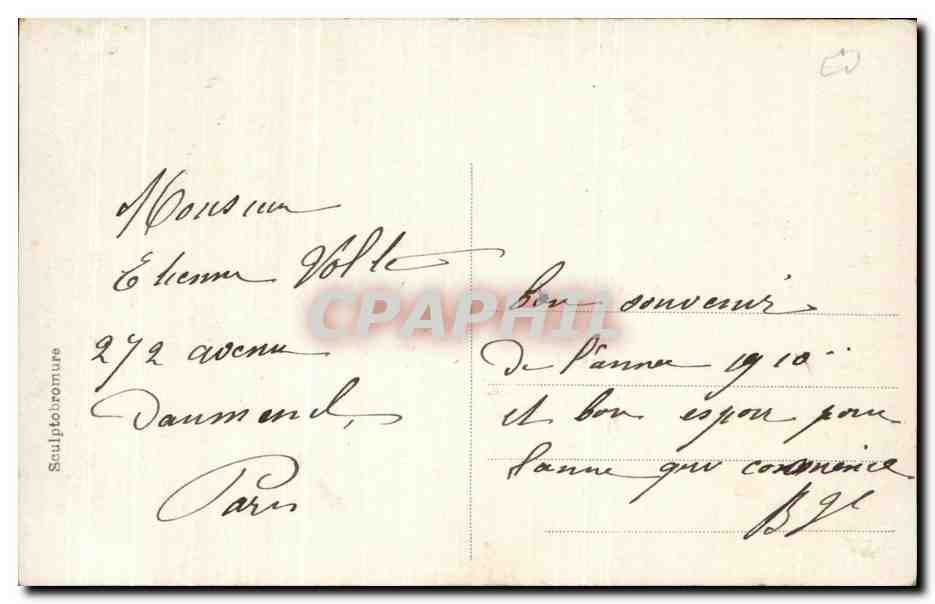 Monsieur
Etienne Volte
272 avenue
Daumenil,
Paris
bon souvenir
de l'année 1910
et bon espoir pour
l'anne qui commence
Sculptobromure
CPAPHIL